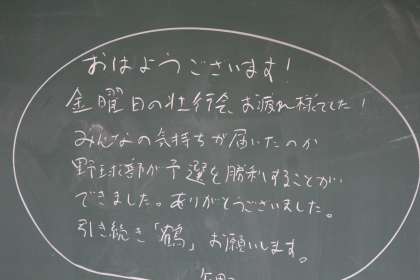 おはようございます！
金曜日の壮行会、お疲れ様でした！
みんなの気持ちが届いたのか
野球部が予選を勝利することが
できました。ありがとうございました。
引き続き「鶴」お願いします。